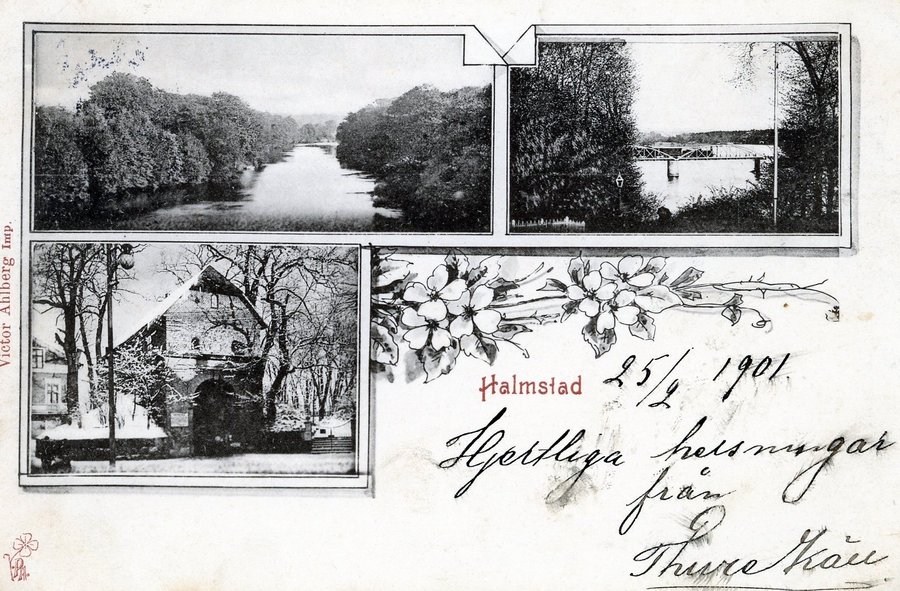 Victor Ahlberg Imp.
Halmstad 25/2 1901
Hjertliga helsningar
från
Thure